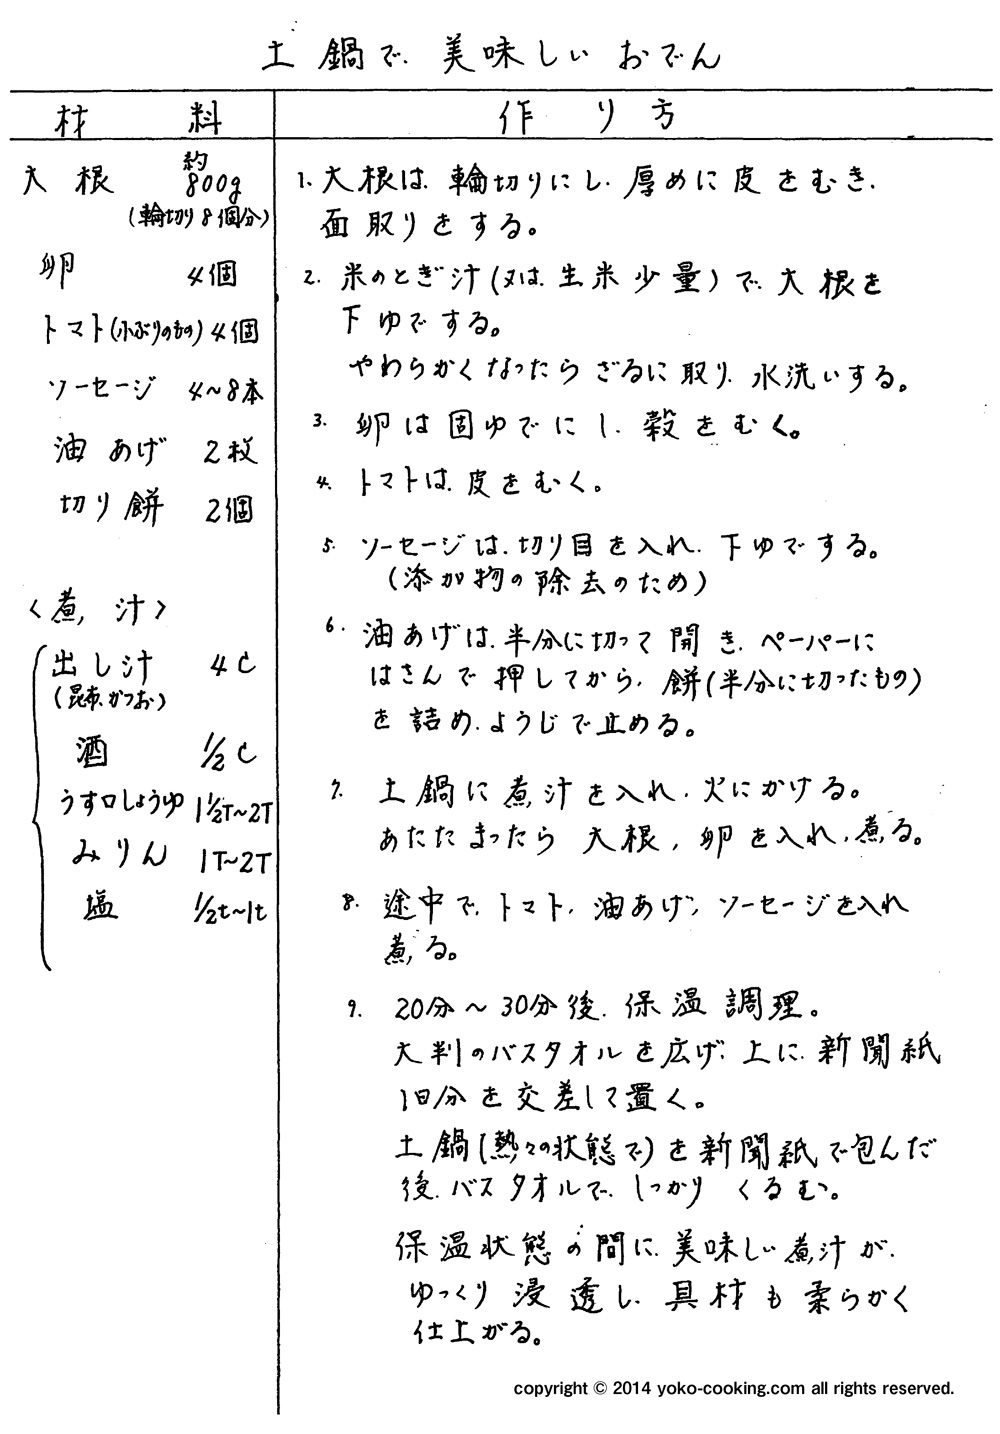 土鍋で美味しいおでん
材料
作り方
大根 約800g
(輪切り8個分)
卵 4個
トマト(小ぶりのもの) 4個
ソーセージ 4~8本
油あげ 2枚
切り餅 2個
<煮汁>
出し汁 4C
(昆布、かつお)
酒 1/2C
うす口しょうゆ 1 1/2T~2T
みりん 1T~2T
塩 1/2t~1t
1. 大根は、輪切りにし、厚めに皮をむき、
面取りをする。
2. 米のとぎ汁(又は、生米少量)で、大根を
下ゆでする。
やわらかくなったらざるに取り、水洗いする。
3. 卵は固ゆでにし、殻をむく。
4. トマトは、皮をむく。
5. ソーセージは、切り目を入れ、下ゆでする。
(添加物の除去のため)
6. 油あげは、半分に切って開き、ペーパーに
はさんで押してから、餅(半分に切ったもの)
を詰め、ようじで止める。
7. 土鍋に煮汁を入れ、火にかける。
あたたまったら大根、卵を入れ、煮る。
8. 途中で、トマト、油あげ、ソーセージを入れ
煮る。
9. 20分~30分後、保温調理。
大判のバスタオルを広げ、上に、新聞紙
1日分を交差して置く。
土鍋(熱々の状態で)を新聞紙で包んだ
後、バスタオルで、しっかりくるむ。
保温状態の間に、美味しい煮汁が、
ゆっくり浸透し、具材も柔らかく
仕上がる。
copyright © 2014 yoko-cooking.com all rights reserved.